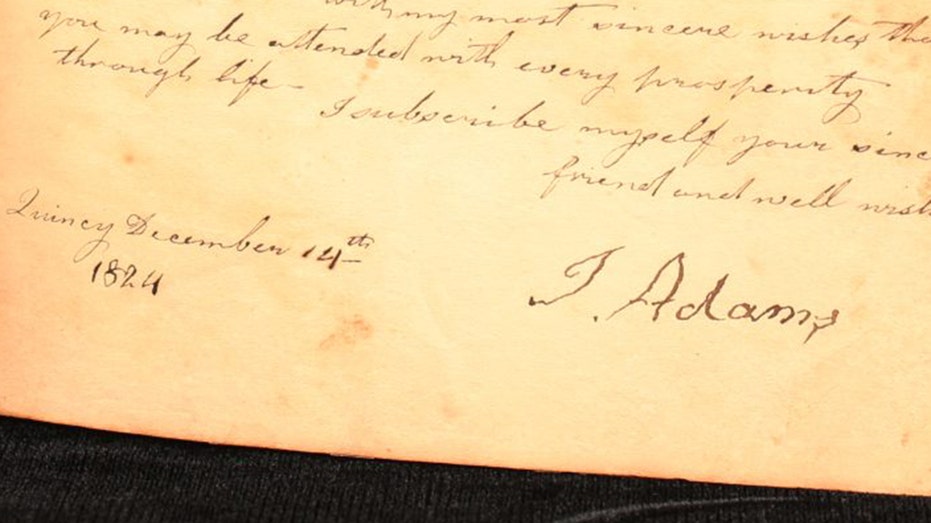 with my most sincere wishes tha
you may be attended with every prosperity
through life—
I subscribe myself your since
friend and well wish
Quincy December 14th
1824
J. Adams